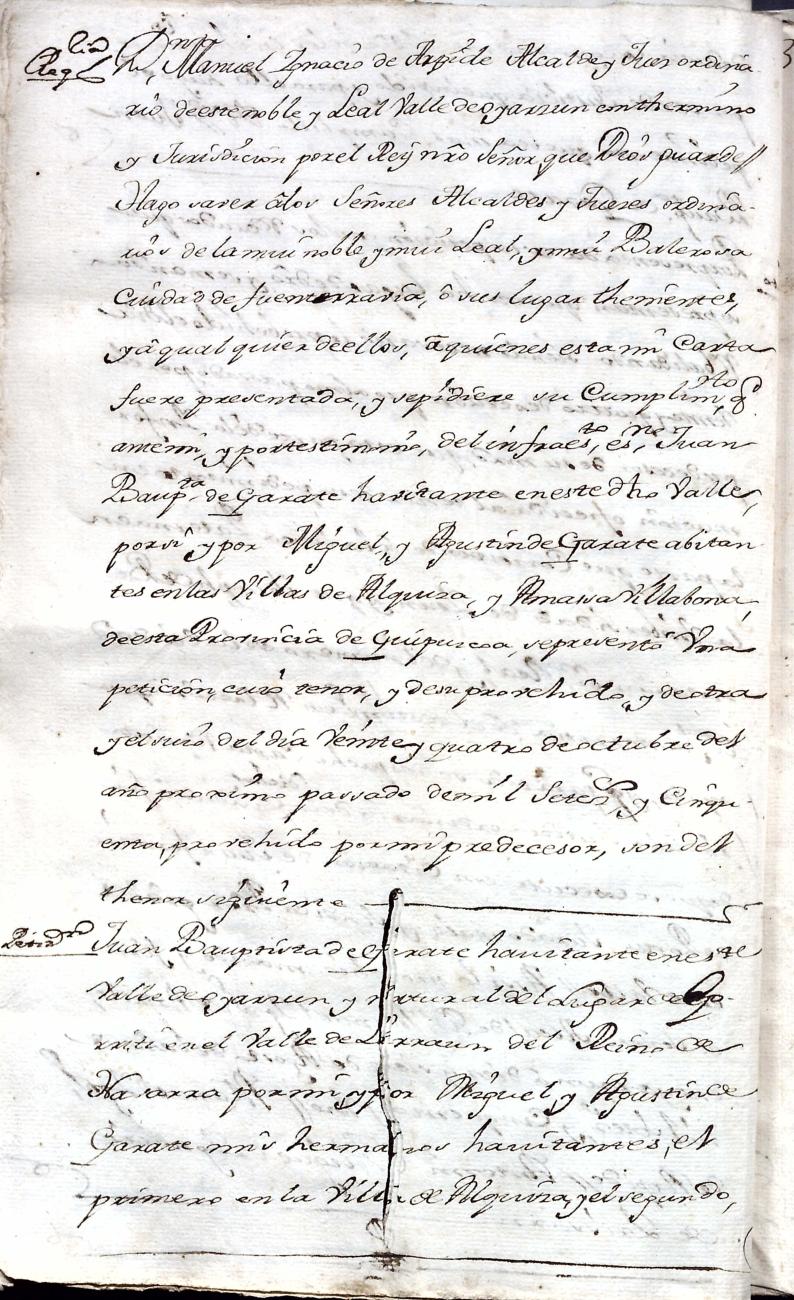 Dn Manuel Ygnacio de Arpide Alcalde y Juez ordina-
rio de este noble y Leal Valle de oyarzun con thermino
y Jurisdicion por el Rey nro Señor, que Dios guarde//
Hago saver â los Señores Alcaldes y Jueces ordina-
rios de la mui noble y mui Leal, y mui Balerosa
Ciudad de fuenterravia, ô sus lugar thenientes,
y â qual quier de ellos, â quienes esta mi Carta
fuere presentada, y se pidiere su Cumplimto, q
ante mi, y por testimonio, del infraesto, esno, Juan
Baupta de Garate havitante en este dho Valle,
por si y por Miguel, y Agustin de Garate abitan
tes en las Villas de Alquiza, y Amassa Villabona,
de esta Provincia de Guipuzcoa, se presentô Vna
peticion, cuio tenor, y de su provehido, y de otra
y el suio del dia Veinte y quatro de octubre del
año proximo passado de mil Setecs, y Cinqu
enta, provehido por mi predecesor, son del
thenor siguiente
Juan Bauptista de Garate havitante en este
Valle de oyarzun y natural del Lugar de Go-
rriti en el Valle de Larraun del Reino de
Navarra por mi, y por Miguel, y Agustin de
Garate mis hermanos havitantes, el
primero en la Villa de Alquiza, y el segundo,